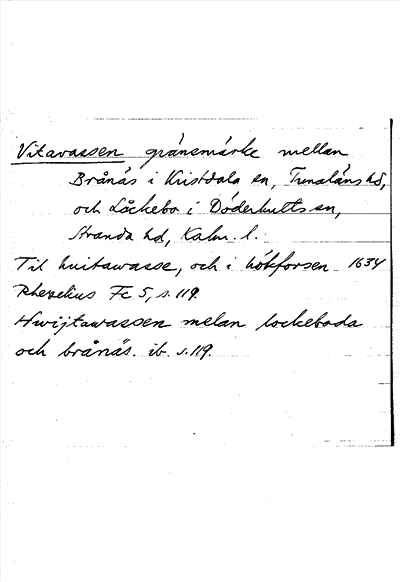 Vitavassen gränsmärke mellan
Brånäs i Kristdala sn, Tunaläns hd,
och Låckebo i Döderhults sn,
Stranda hd, Kalm. l.
Til huitawasse, och i hökforsen 1634
Rhezelius Fc 5, s. 119.
Hwijtawassen melan lockeboda
och brånäs. ib. s. 119.